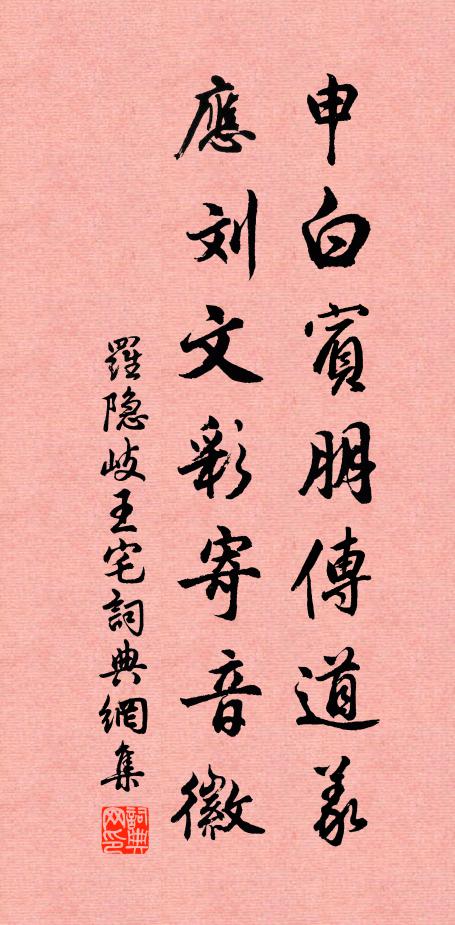 申白賓朋傳道義
應刘文彩寄音徽
羅隐岐王宅詞典網集
詞典网印